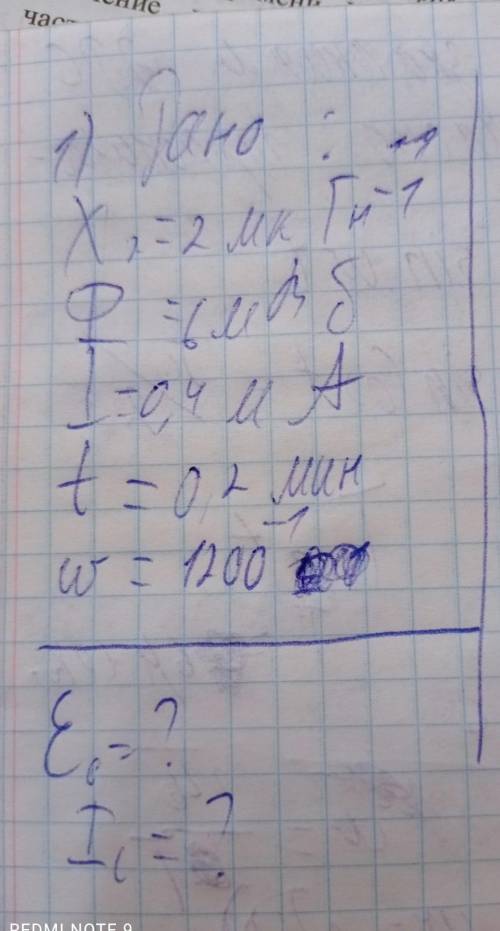 чение
част
1) Дано :
X = 2 мк Гн⁻¹
Ф = 6 м Вб
I = 0,4 м А
t = 0,2 мин
w = 1200 ⁻¹
Ɛ₀ = ?
I = ?
REDMI NOTE 9